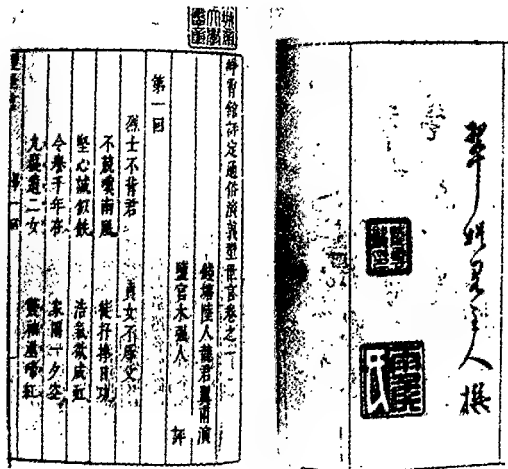 翠娛閣主人撰
崢霄館評定通俗演義型世言卷之一
錢塘陸人龍君翼甫演
鹽官木強人 評
第一回
烈士不背君 貞女不辱父
不競嘆南風 徒抒捧日功
堅心誠似鐵 浩氣欲成虹
令譽千年在 家園一夕空
九嶷遺二女 袖濕啼紅